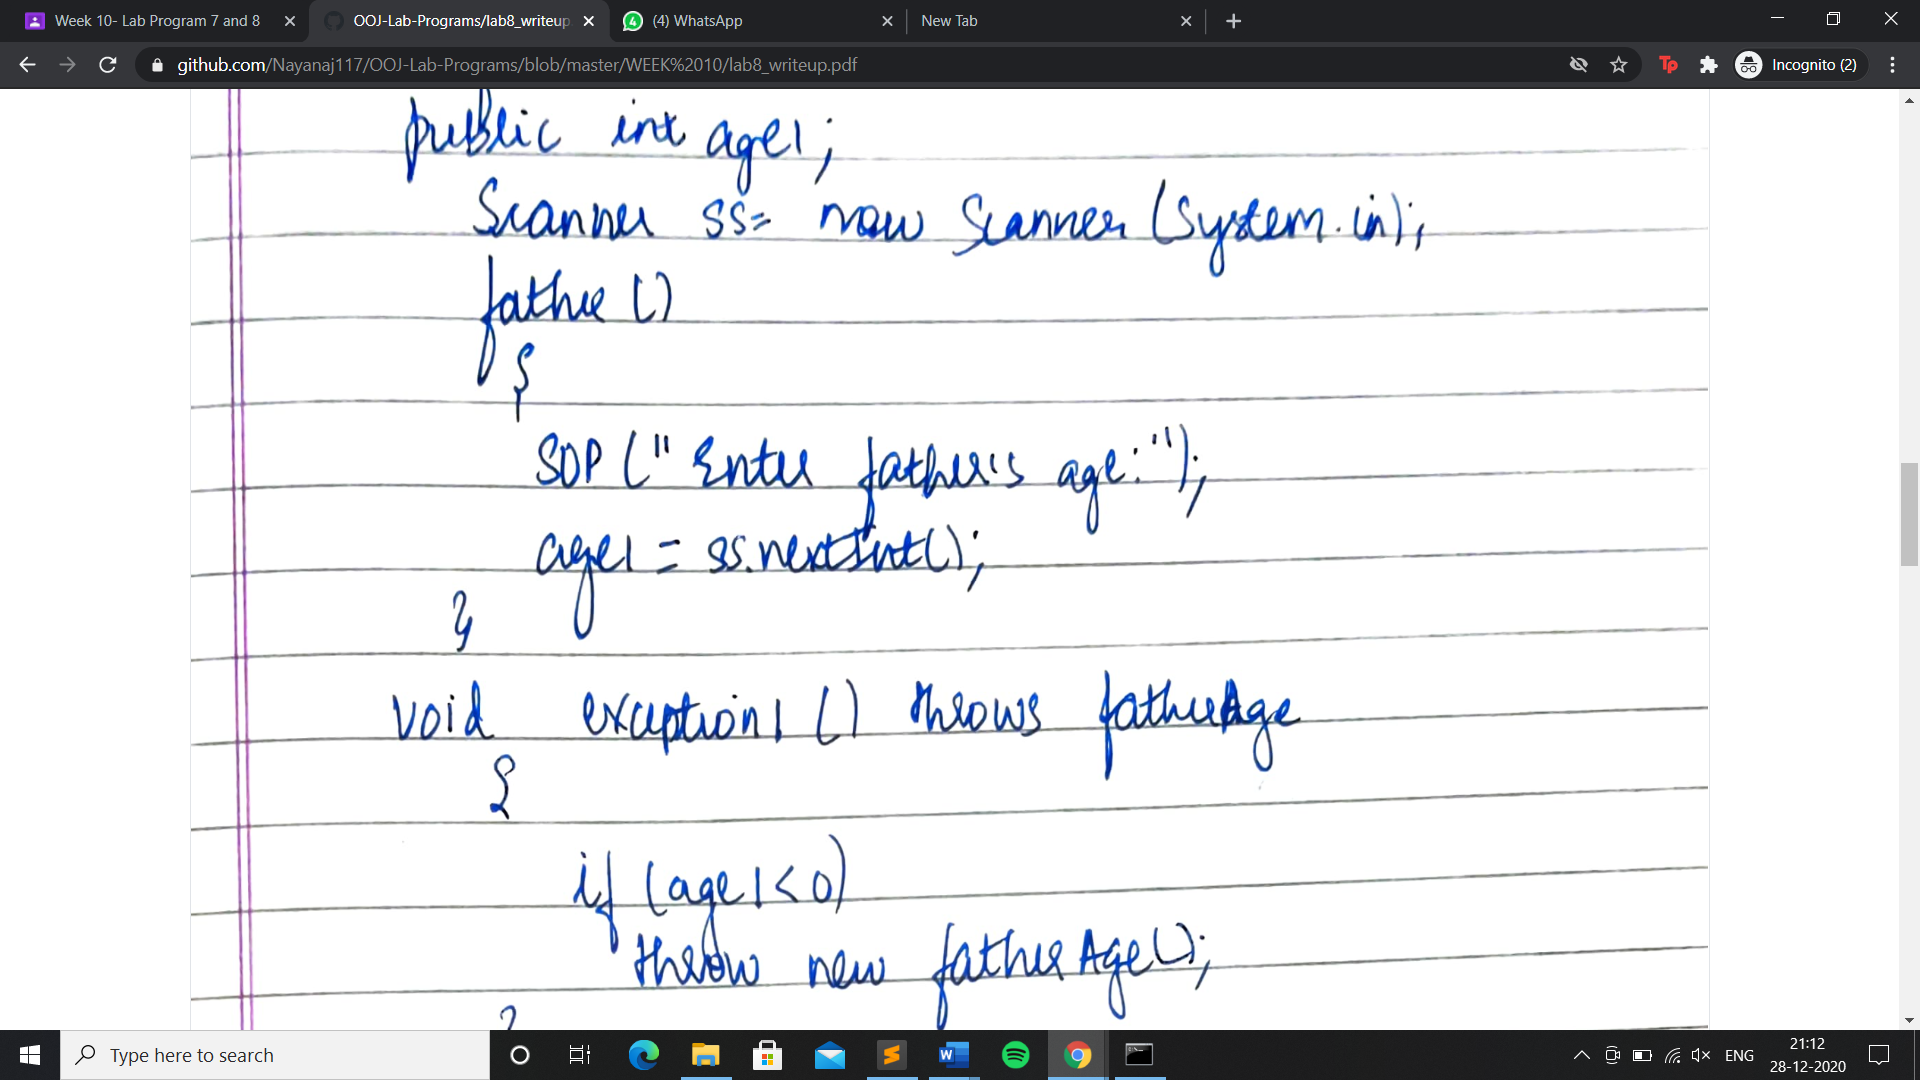 Week 10- Lab Program 7 and 8
OOJ-Lab-Programs/lab8_writeup
(4) WhatsApp
New Tab
github.com/Nayanaj117/OOJ-Lab-Programs/blob/master/WEEK%2010/lab8_writeup.pdf
Incognito (2)
public int age1;
Scanner ss= new Scanner (System.in);
father ()
{
SOP (" Enter father's age:");
age1 = ss.nextInt();
}
void exception1 () throws fatherAge
{
if (age1<0)
throw new father Age();
}
Type here to search
ENG
21:12
28-12-2020